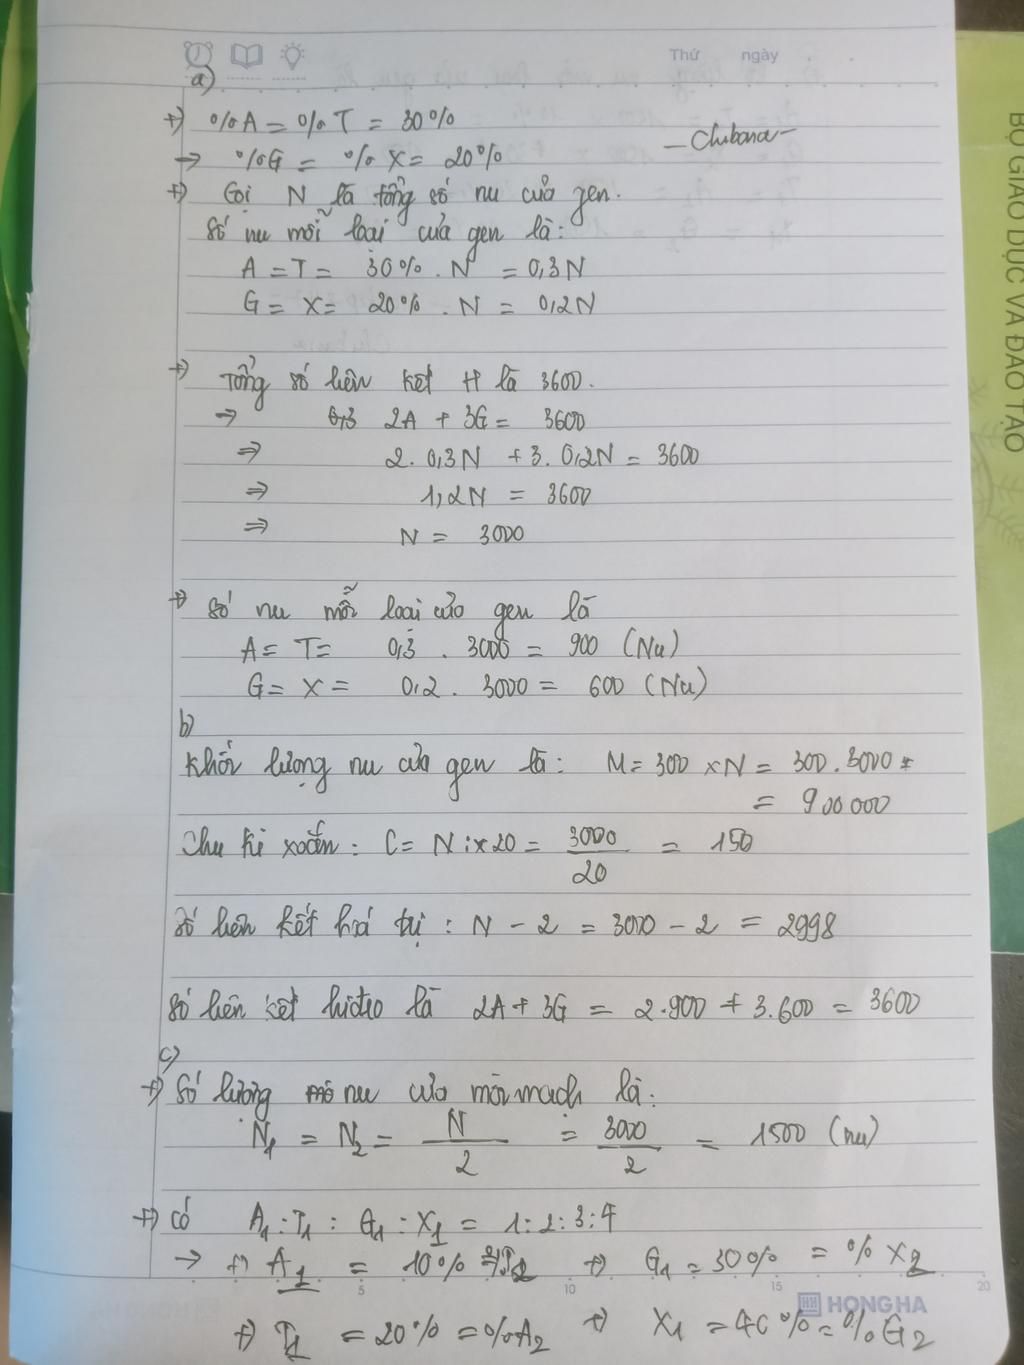 Thứ ngày
a)
+) %A = %T = 30%
- Chibana -
→ %G = %X = 20%
+) Gọi N là tổng số nu của gen.
Số nu mỗi loại của gen là:
A = T = 30% . N = 0,3N
G = X = 20% . N = 0,2N
+) Tổng số liên kết H là 3600.
→ 2A + 3G = 3600
⇒ 2. 0,3N + 3. 0,2N = 3600
⇒ 1,2N = 3600
⇒ N = 3000
+) Số nu mỗi loại của gen là
A = T = 0,3 . 3000 = 900 (Nu)
G = X = 0,2 . 3000 = 600 (Nu)
b)
Khối lượng nu của gen là: M = 300 x N = 300 . 3000
= 900 000
Chu kì xoắn: C = N : 20 = 3000/20 = 150
Số liên kết hoá trị : N - 2 = 3000 - 2 = 2998
Số liên kết hidro là 2A + 3G = 2.900 + 3.600 = 3600
c)
+) Số lượng nu của mỗi mạch là:
N1 = N2 = N/2 = 3000/2 = 1500 (nu)
+) Có A1 : T1 : G1 : X1 = 1 : 2 : 3 : 4
→ +) A1 = 10% = T2 +) G1 = 30% = % X2
5 10 15 20
HONG HA
+) T1 = 20% = %A2 +) X1 = 40% = %G2
BỘ GIÁO DỤC VÀ ĐÀO TẠO